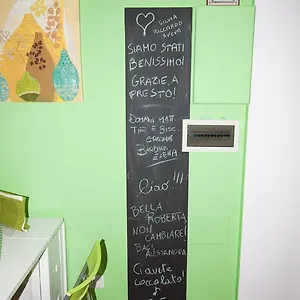 SILVIA
RICCARDO
SIAMO STATI
BENISSIMO!
GRAZIE, A
PRESTO!
DOMANI MATT
TÈ E BISC.
BARBARA
Ciao!!!
BELLA
ROBERTA
NON
CAMBIARE!
BACI
ALESSANDRA
Ci avete
coccolato!